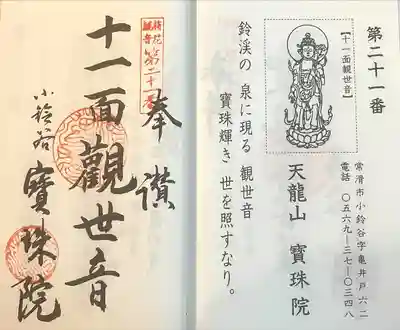 第二十一番
【十一面観世音】
天龍山 寶珠院
常滑市小鈴谷字亀井戸六二
電話 〇五六九ー三七ー〇三四八
鈴渓の 泉に現る 観世音
寶珠輝き 世を照すなり。
奉讃
第二十一番
十一面觀世音
小鈴谷 寶珠院